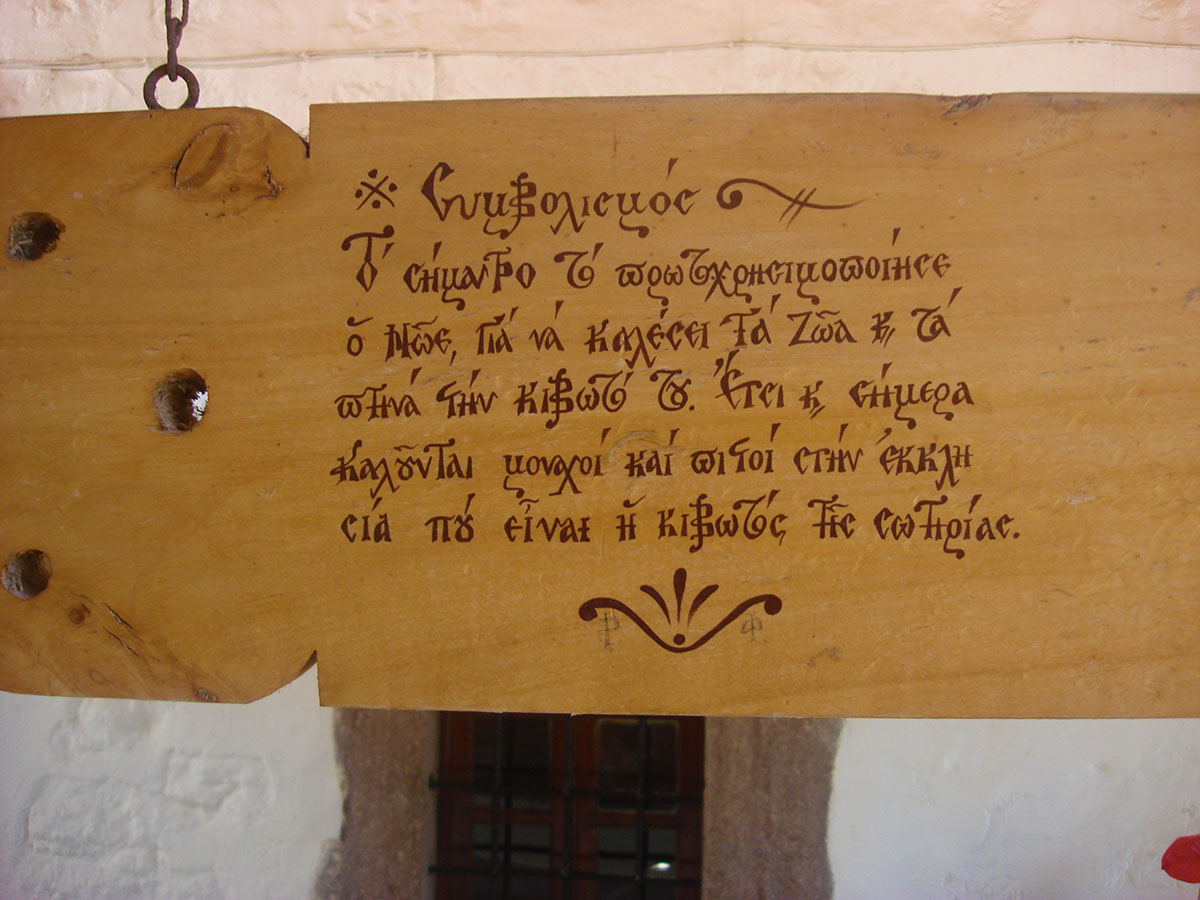 ※ Συμβολισμός
Τό σήμαντρο τό πρωτοχρησιμοποίησε
ὁ Νῶε, γιά νά καλέσει τά ζῶα κ, τά
πτηνά στήν κιβωτό του. Ἔτσι κ, σήμερα
καλοῦνται μοναχοί καί πιστοί στήν ἐκκλη
σία πού εἶναι ἡ κιβωτός τῆς σωτηρίας.